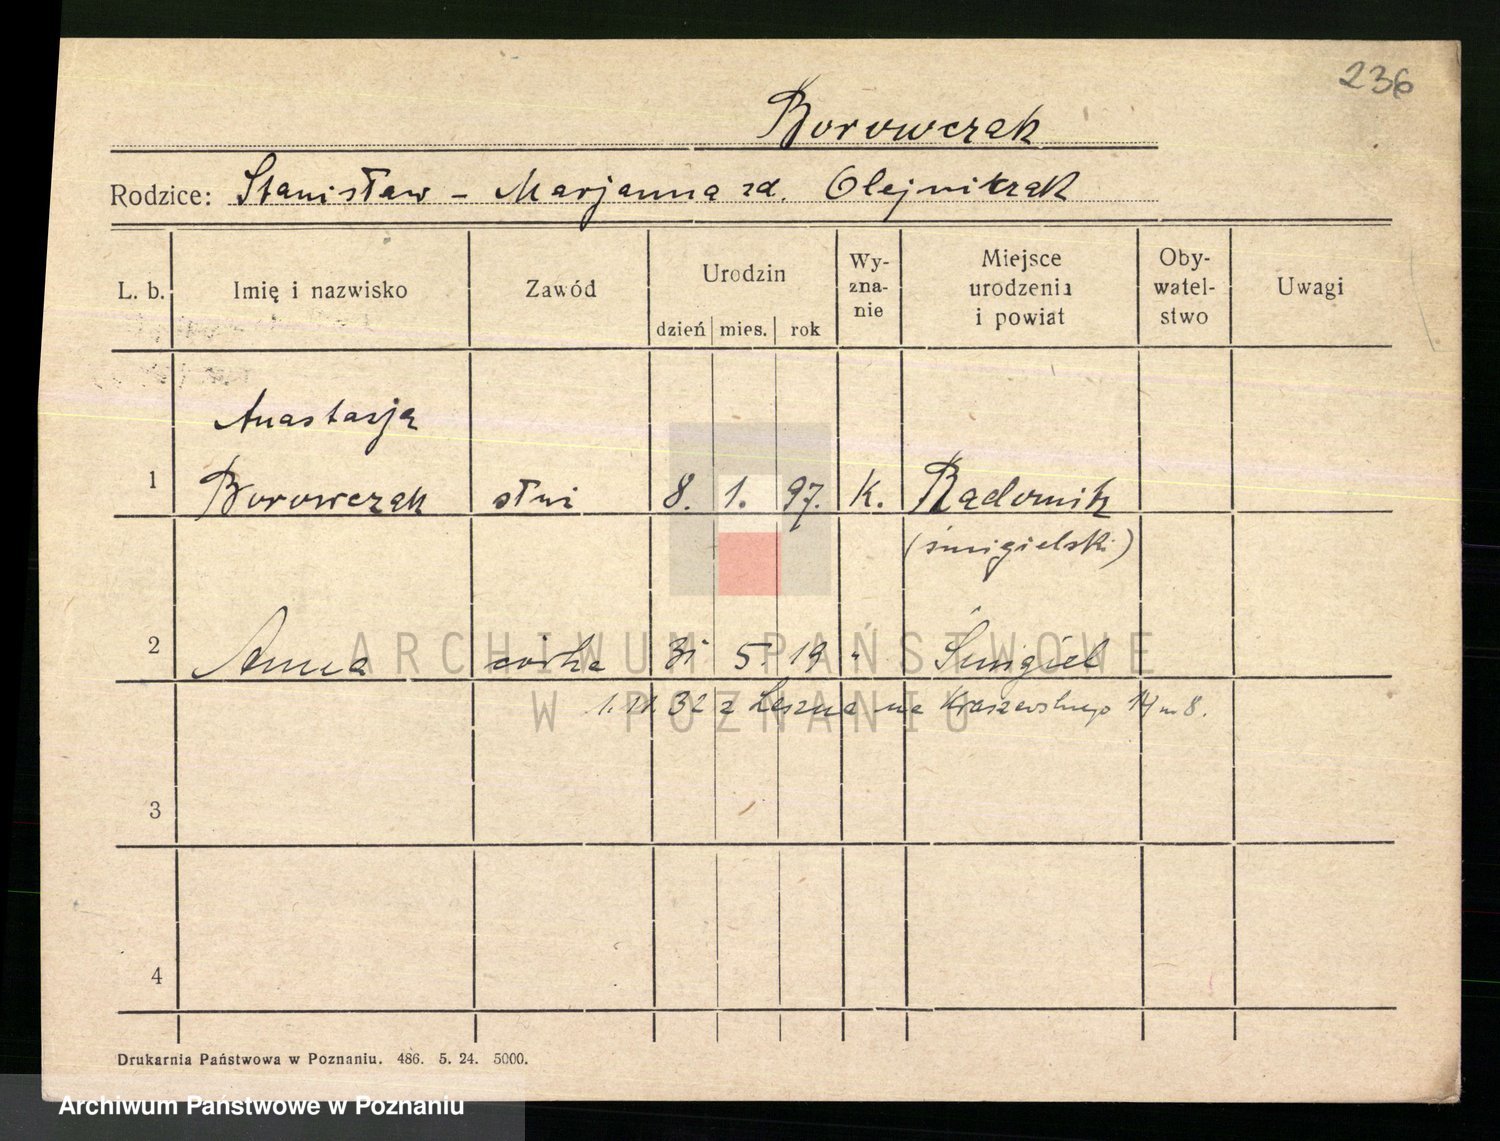 236
Borowczak
Rodzice: Stanisław - Marjanna zd. Olejniczak
L. b. Imię i nazwisko Zawód Urodzin dzień mies. rok Wy-zna-nie Miejsce urodzenia i powiat Oby-watel-stwo Uwagi
Anastazja
1 Borowczak słni 8. 1. 97. K. Radomik
(śmigielski)
2 Anna córka 31 5. 19 " Śmigiel
32 z Leszna na Kraszewskiego 14 m 8.
3
4
Drukarnia Państwowa w Poznaniu. 486. 5. 24. 5000.
ARCHIWUM PAŃSTWOWE
W POZNANIU
Archiwum Państwowe w Poznaniu